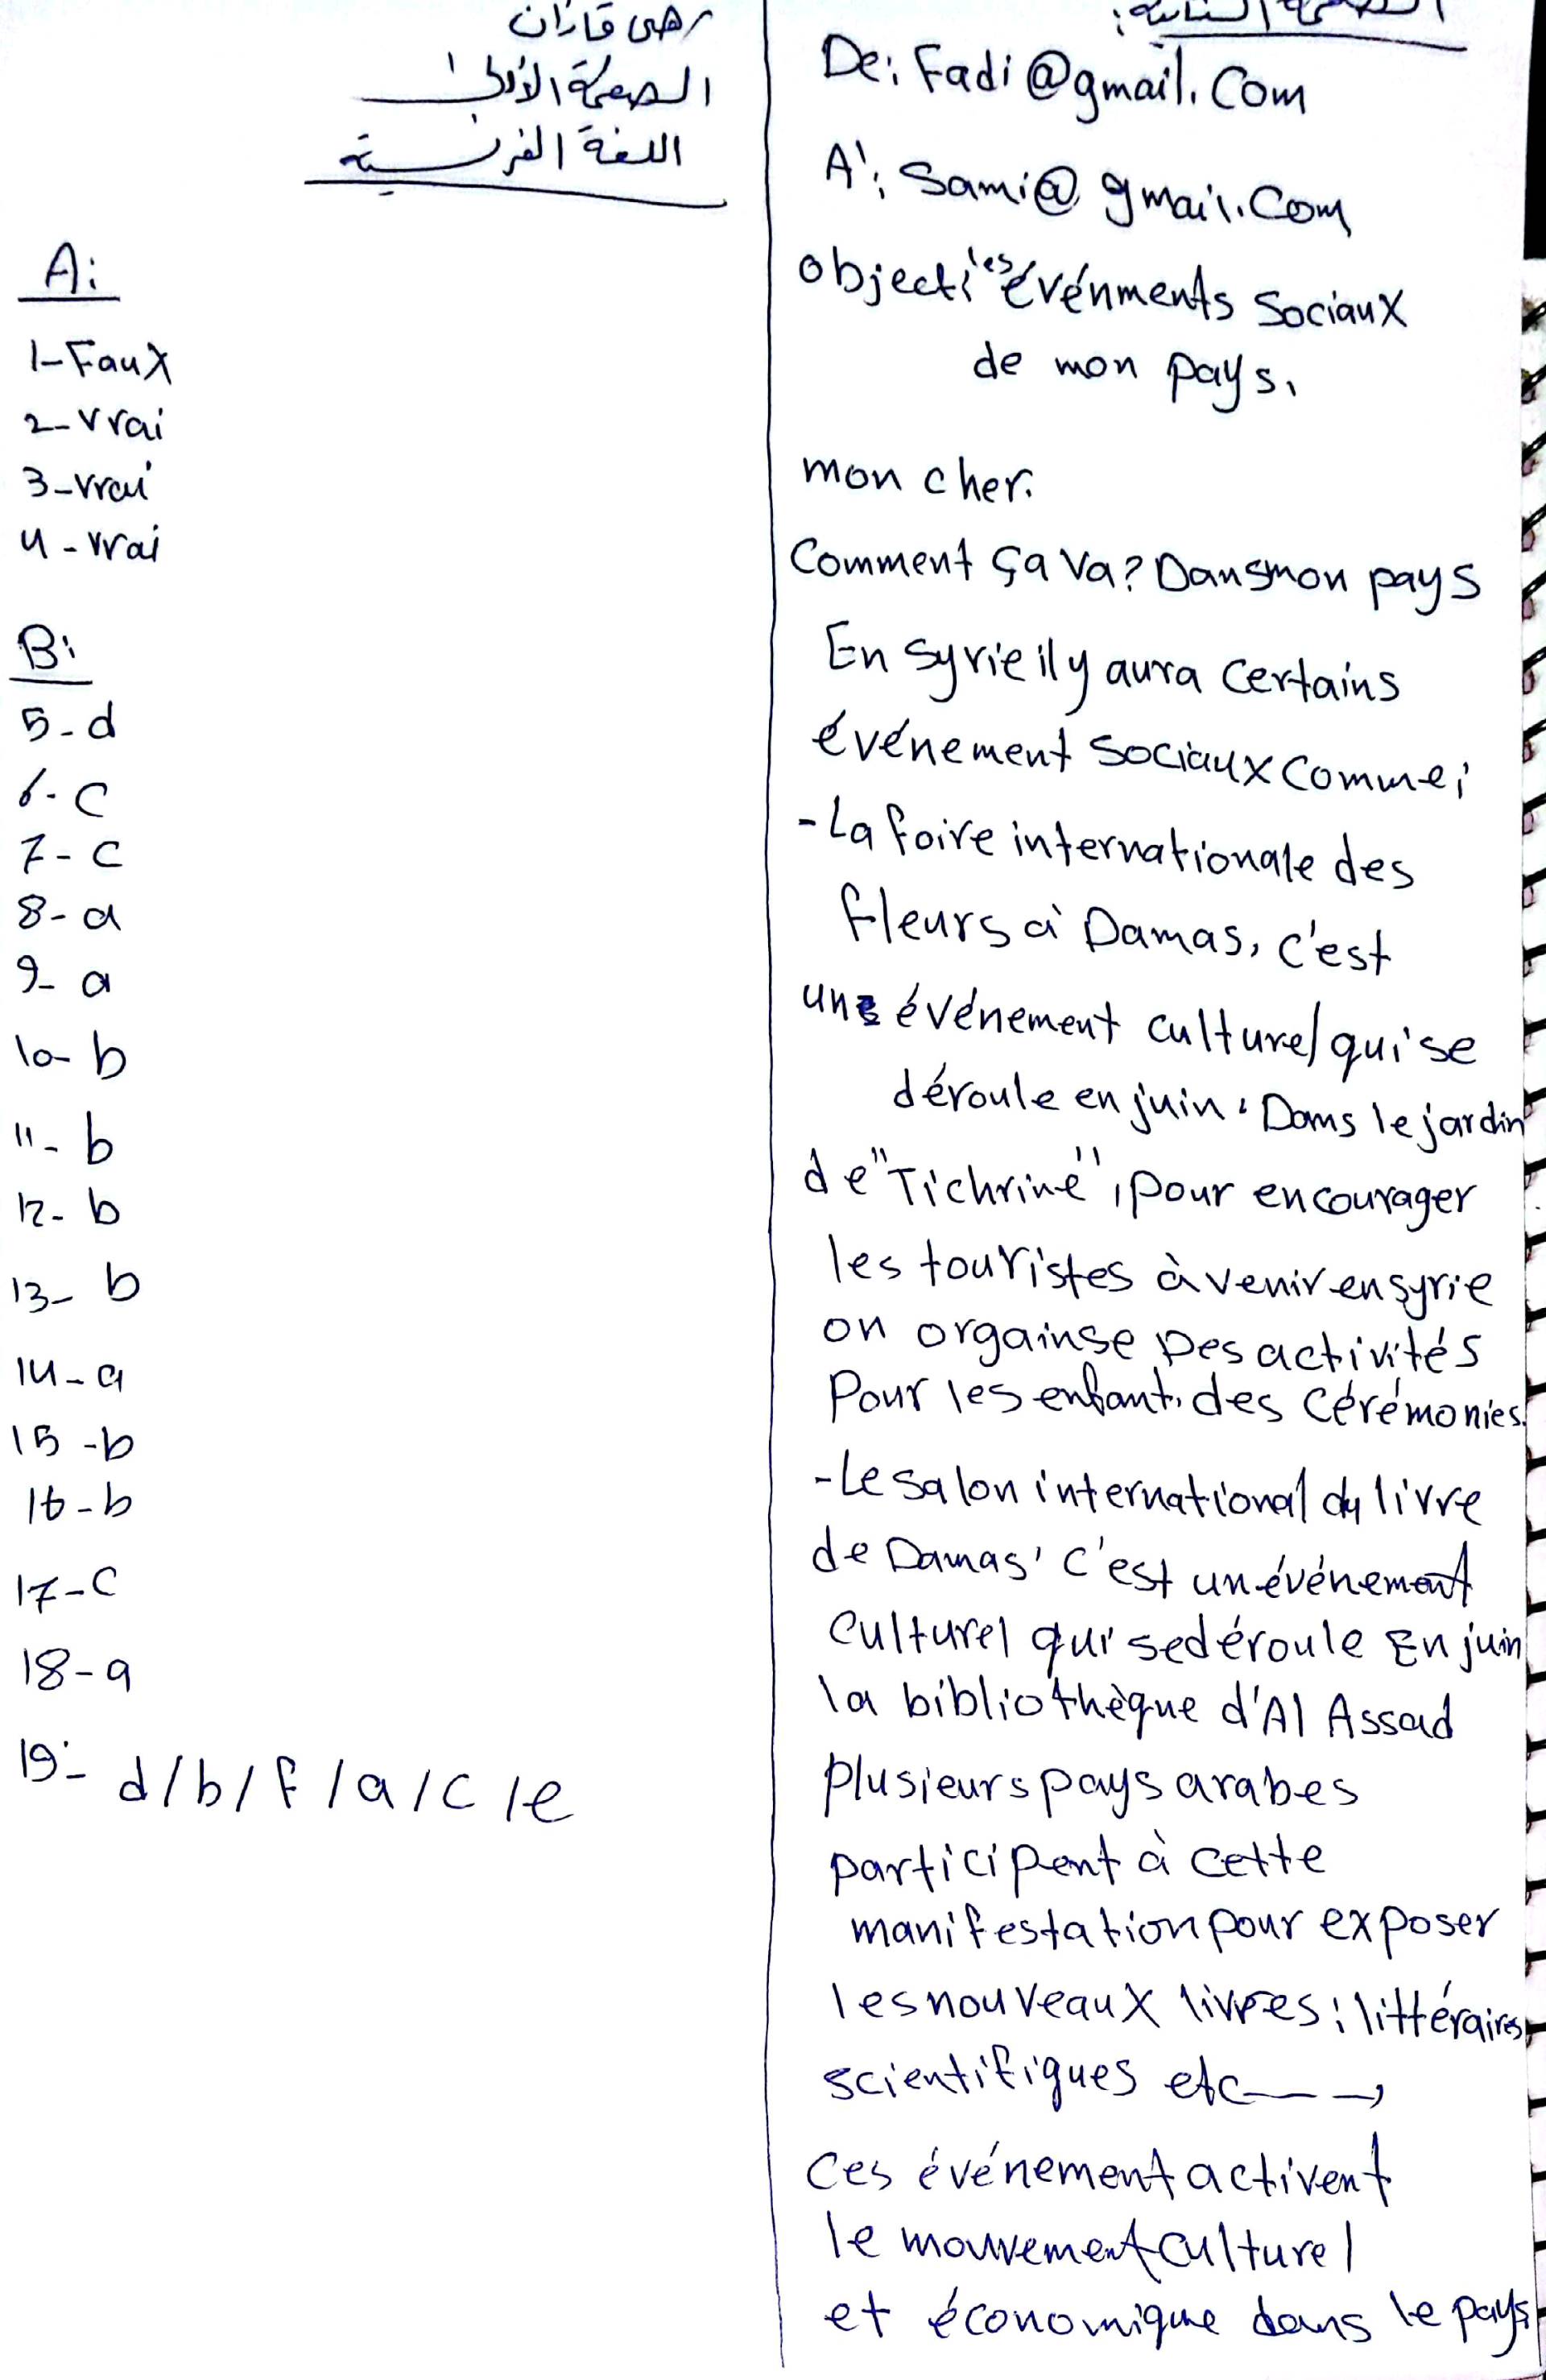 رهى قازان
الصفحة الأولى
اللغة الفرنسية
A:
1-Faux
2-vrai
3-vrai
4-vrai
B:
5-d
6-c
7-c
8-a
9-a
10-b
11-b
12-b
13-b
14-a
15-b
16-b
17-c
18-a
19:- d/b/f/a/c/e
الصفحة الثانية:
De: Fadi@gmail.Com
A': Sami@gmail.Com
objecti les événments Sociaux
de mon pays.
mon cher.
Comment ça va? Dans mon pays
En syrie il y aura certains
événement sociaux comme:
-La foire internationale des
fleurs à Damas, c'est
une événement culturel qui se
déroule en juin. Dans le jardin
de "Tichrine", pour encourager
les touristes à venir en syrie
on orgainse Des activités
Pour les enfant. des cérémonies.
-Le salon international du livre
de Damas, C'est un événement
Culturel qui se déroule En juin
la bibliothèque d'Al Assad
plusieurs pays arabes
participent à cette
manifestation pour exposer
les nouveaux livres: littéraires,
scientifiques etc---,
Ces événement activent
le mouvement culturel
et économique dans le pays